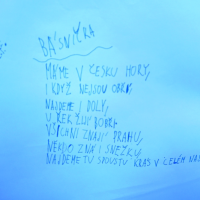 BÁSNIČKA
MÁME V ČESKU HORY,
I KDYŽ NEJSOU OBŘI,
NAJDEME I DOLY,
U KEŘ ŽIJÍ BOBŘI
VŠICHNI ZNAJÍ PRAHU,
NĚKDO ZNÁ I SNĚŽKU,
NAJDEME TU SPOUSTU KRÁS V CELÉM